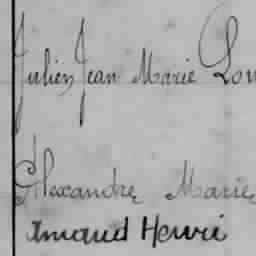 Julien Jean Marie Lou
Alexandre Marie
Amand Henri